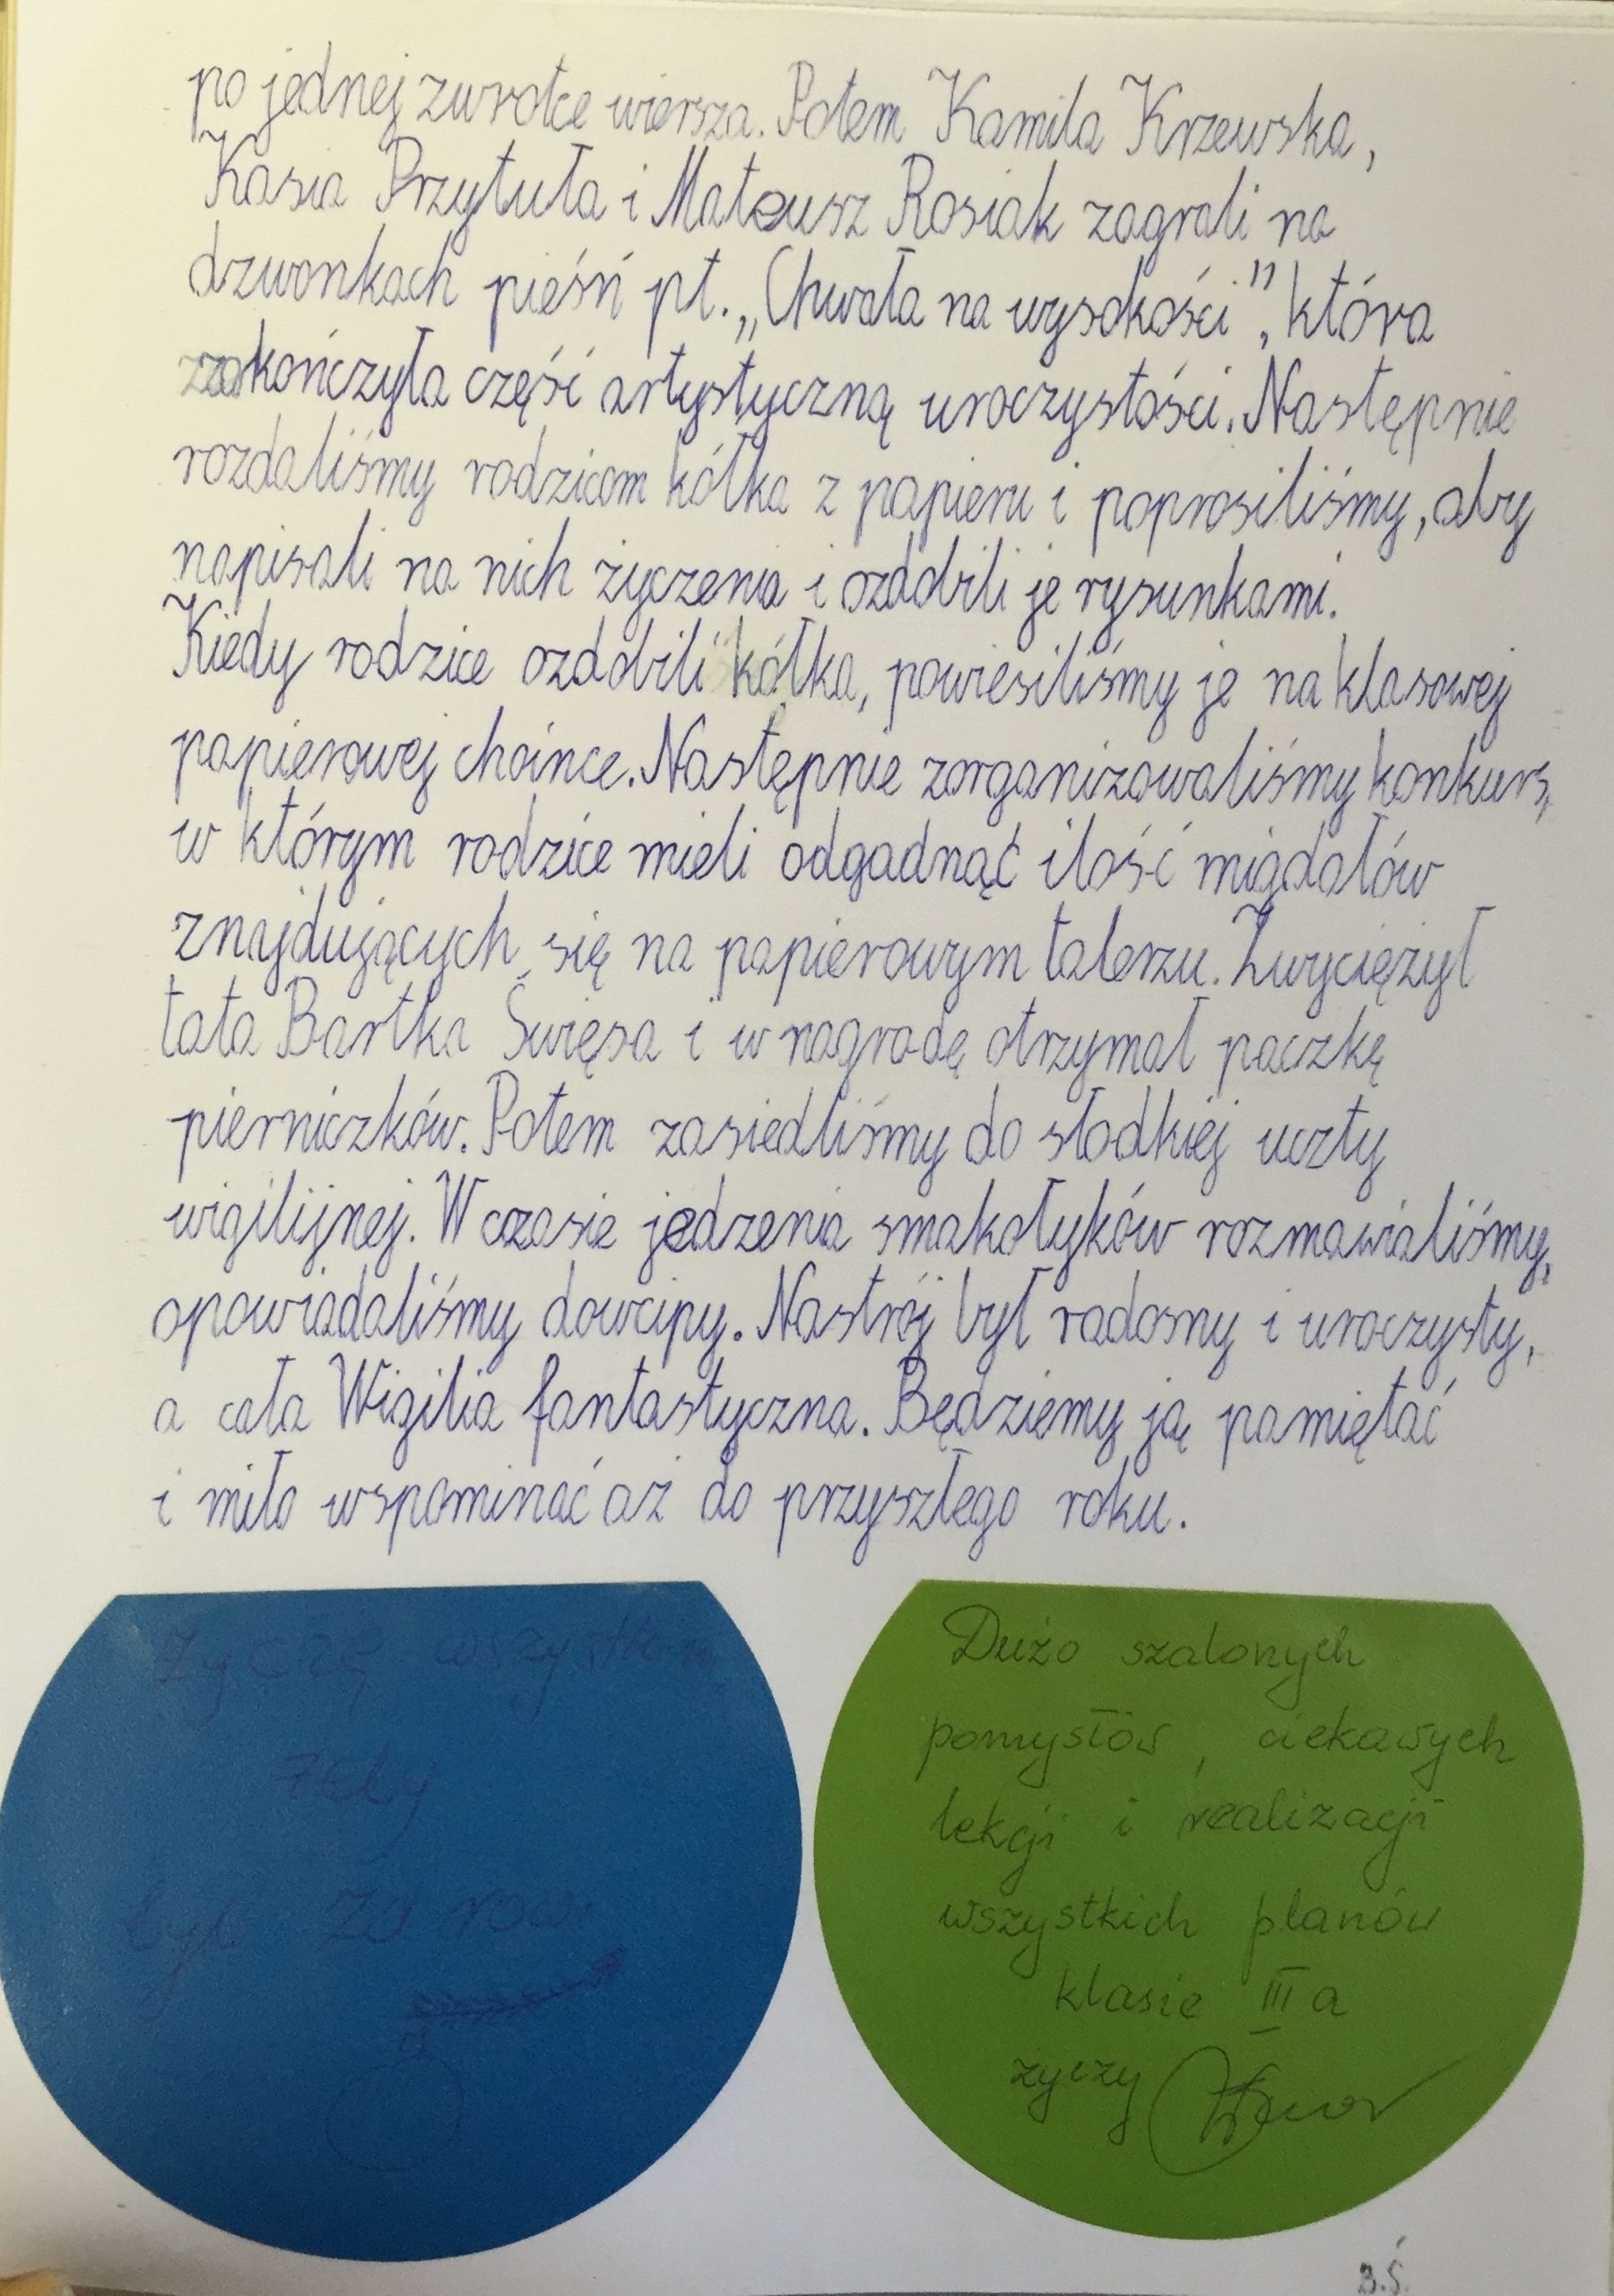 po jednej zwrotce wiersza. Potem Kamila Krzewska,
Kasia Przytuła i Mateusz Rosiak zagrali na
dzwonkach pieśń pt. „Chwała na wysokości”, która
zakończyła część artystyczną uroczystości. Następnie
rozdaliśmy rodzicom kółka z papieru i poprosiliśmy, aby
napisali na nich życzenia i ozdobili je rysunkami.
Kiedy rodzice ozdobili kółka, powiesiliśmy je na klasowej
papierowej choince. Następnie zorganizowaliśmy konkurs,
w którym rodzice mieli odgadnąć ilość migdałów
znajdujących się na papierowym talerzu. Zwyciężył
tata Bartka Święsa i w nagrodę otrzymał paczkę
pierniczków. Potem zasiedliśmy do słodkiej uczty
wigilijnej. W czasie jedzenia smakołyków rozmawialiśmy,
opowiadaliśmy dowcipy. Nastrój był radosny i uroczysty,
a cała Wigilia fantastyczna. Będziemy ją pamiętać
i miło wspominać aż do przyszłego roku.
Życzę wszystkim
żeby
było
Dużo szalonych
pomysłów, ciekawych
lekcji i realizacji
wszystkich planów
klasie III a
życzy
B.Ś.